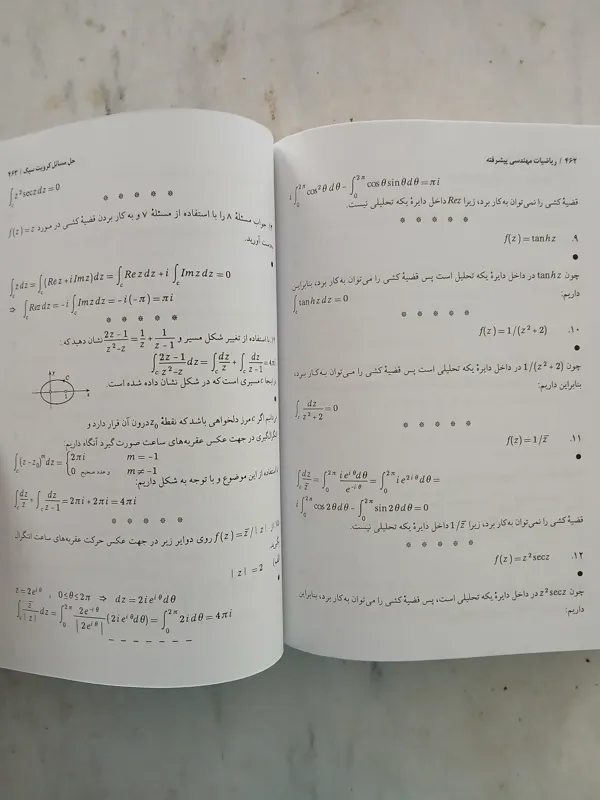 ۴۶۲ / ریاضیات مهندسی پیشرفته
i∫₀^{2π} cos²θ dθ - ∫₀^{2π} cosθ sinθ dθ = πi
قضیهٔ کشی را نمی‌توان به‌کار برد، زیرا Rez داخل دایرهٔ یکه تحلیلی نیست.
* * * * *
۹. f(z)=tanhz
●
چون tanhz در داخل دایرهٔ یکه تحلیل است پس قضیهٔ کشی را می‌توان به‌کار برد، بنابراین
داریم:
∫_c tanhz dz = 0
* * * * *
۱۰. f(z)=1/(z²+2)
●
چون 1/(z²+2) در داخل دایرهٔ یکه تحلیلی است پس قضیهٔ کشی را می‌توان به‌کار برد،
بنابراین داریم:
∫_c dz/(z²+2) = 0
* * * * *
۱۱. f(z)=1/z̄
●
∫_c dz/z̄ = ∫₀^{2π} ie^{iθ}dθ/e^{-iθ} = ∫₀^{2π} ie^{2iθ}dθ =
i∫₀^{2π} cos2θdθ - ∫₀^{2π} sin2θdθ = 0
قضیهٔ کشی را نمی‌توان به‌کار برد، زیرا 1/z̄ داخل دایرهٔ یکه تحلیلی نیست.
* * * * *
۱۲. f(z)=z²secz
●
چون z²secz در داخل دایرهٔ یکه تحلیلی است، پس قضیهٔ کشی را می‌توان به‌کار برد، بنابراین
داریم:
حل مسائل کرویت سیگ / ۴۶۳
∫_c z²secz dz = 0
* * * * *
جواب مسئلهٔ ۸ را با استفاده از مسئلهٔ ۷ و به کار بردن قضیهٔ کشی در مورد f(z)=z
بدست آورید.
●
∫_c zdz = ∫_c (Rez+iImz)dz = ∫_c Rezdz + i∫_c Imzdz = 0
⇒ ∫_c Rezdz = -i∫_c Imzdz = -i(-π) = πi
* * * * *
با استفاده از تغییر شکل مسیر و (2z-1)/(z²-z) = 1/z + 1/(z-1) نشان دهید که:
∫_c (2z-1)/(z²-z) dz = ∫_c dz/z + ∫_c dz/(z-1) = 4πi
در اینجا c مسیری است که در شکل نشان داده شده است.
C
1
●
می‌دانیم اگر c مرز دلخواهی باشد که نقطهٔ z₀ درون آن قرار دارد و
انتگرالگیری در جهت عکس عقربه‌های ساعت صورت گیرد آنگاه داریم:
∫_c (z-z₀)^m dz = { 2πi m=-1
0 و عدد صحیح m≠-1
با استفاده از این موضوع و با توجه به شکل داریم:
∫_c dz/z + ∫_c dz/(z-1) = 2πi+2πi = 4πi
* * * * *
از f(z)=z̄/|z| روی دوایر زیر در جهت عکس حرکت عقربه‌های ساعت انتگرال
|z|=2
z=2e^{iθ} , 0≤θ≤2π ⇒ dz=2ie^{iθ}dθ
∫_c z̄/|z| dz = ∫₀^{2π} 2e^{-iθ}/|2e^{iθ}| (2ie^{iθ}dθ) = ∫₀^{2π} 2idθ = 4πi